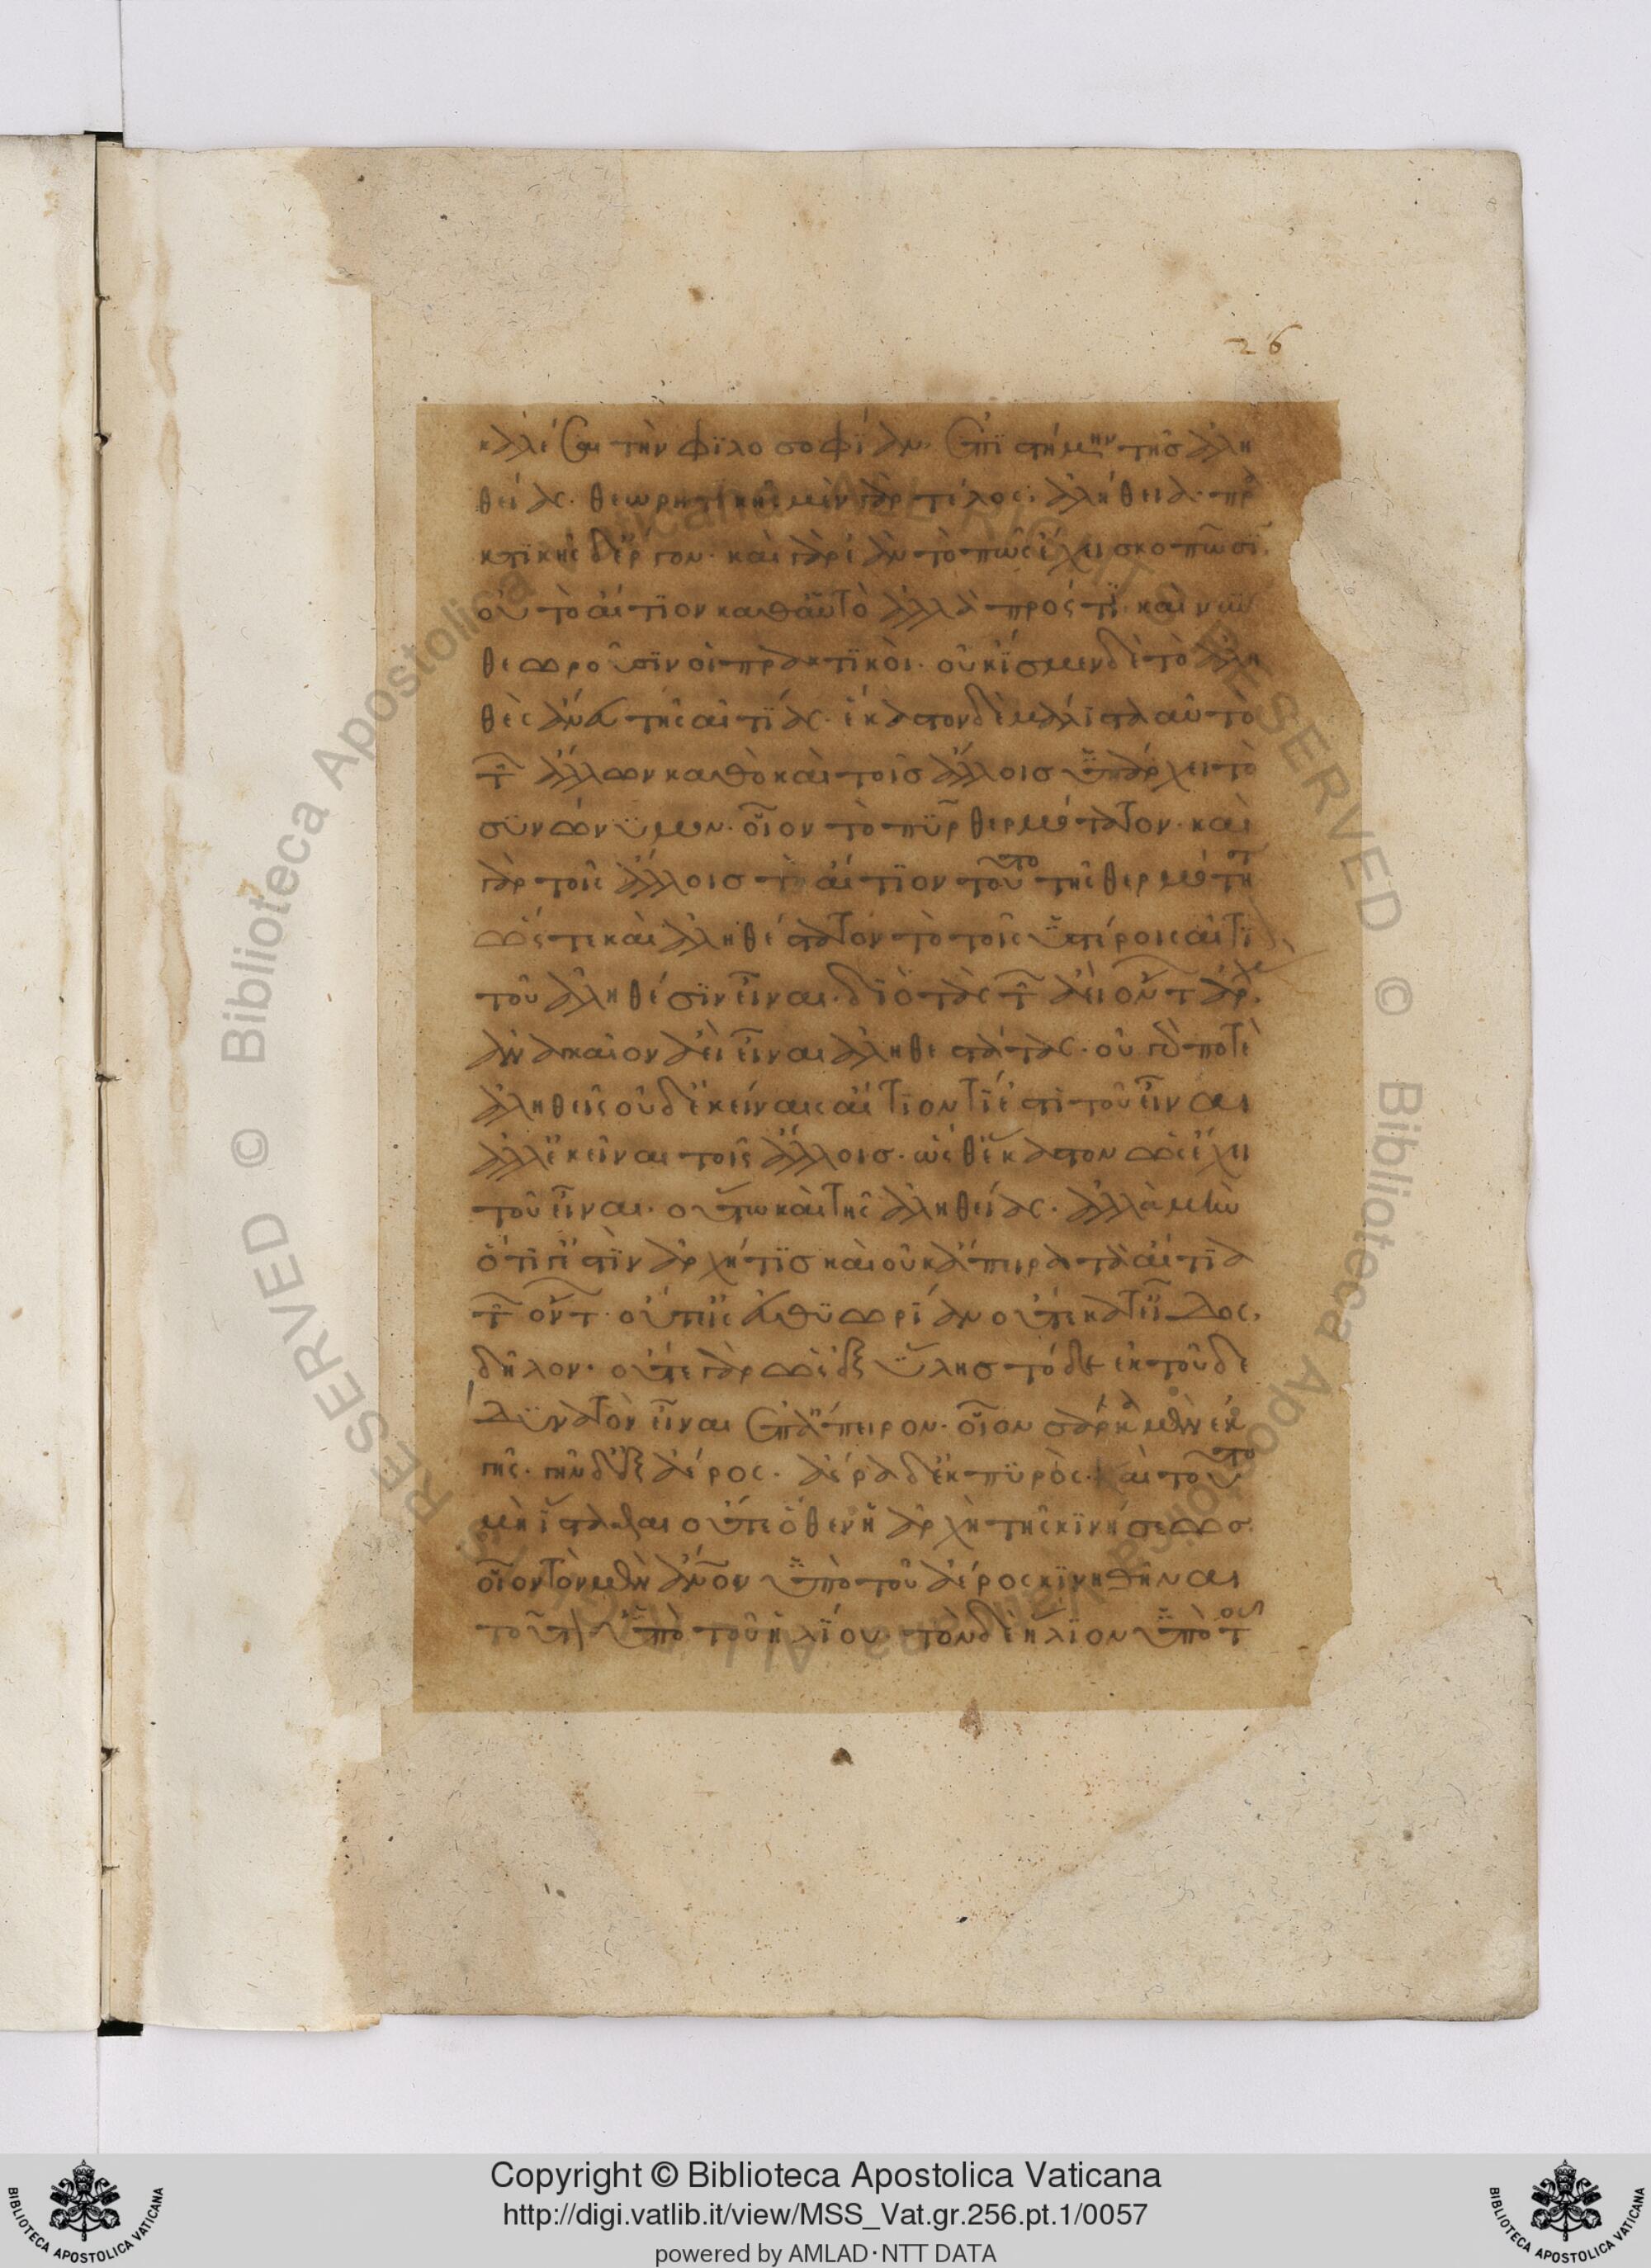 26
καλέσαι τὴν φϊλοσοφΐαν ἐπϊστήμην τῆς ἀλη
θείας· θεωρητικῆς μὲν γὰρ τέλος· ἀλήθεια· πρα
κτϊκῆς δ' ἔργον· καὶ γὰρ ἐὰν τὸ πῶς ἔχει σκοπῶσϊ
οὐ τὸ αἴτϊον καθ' αὑτὸ ἀλλὰ πρός τϊ καὶ νῦν
θεωροῦσϊν οἱ πρακτϊκοὶ· οὐκ ἴσμεν δὲ τὸ ἀλη
θὲς ἄνευ τῆς αἰτΐας· ἕκαστον δὲ μάλϊστα αὐτὸ
τῶν ἄλλων καθὸ καὶ τοῖς ἄλλοις ὑπάρχει τὸ
σϋνώνϋμον· οἷον τὸ πῦρ θερμότατον· καὶ
γὰρ τοῖς ἄλλοις τὸ αἴτϊον τοῦτο τῆς θερμότητος
ὥστε καὶ ἀληθέστατον τὸ τοῖς ὑστέροις αἴτϊ
τοῦ ἀληθέσϊν εἶναι· δϊὸ τὰς τῶν ἀεὶ ὄντων ἀρχὰς
ἀναγκαῖον ἀεὶ εἶναι ἀληθεστάτας· οὐ γὰρ ποτὲ
ἀληθεῖς οὐδ' ἐκείναις αἴτϊον τΐ ἐστι τοῦ εἶναι
ἀλλ' ἐκεῖναι τοῖς ἄλλοις· ὥσθ' ἕκαστον ὡς ἔχει
τοῦ εἶναι· οὕτω καὶ τῆς ἀληθείας· ἀλλὰ μὴν
ὅτϊ γ' ἔστϊν ἀρχή τϊς καὶ οὐκ ἄπειρα τὰ αἴτϊα
τῶν ὄντων· οὔτ' εἰς εὐθϋωρΐαν οὔτε κατ' εἶδος,
δῆλον· οὔτε γὰρ ὡς ἐξ ὕλης τόδε ἐκ τοῦδε
δϋνατὸν εἶναι ἐπ' ἄπειρον· οἷον σάρκα μὲν ἐκ
γῆς· γῆν δ' ἐξ ἀέρος· ἀέρα δ' ἐκ πϋρὸς· καὶ τοῦτο
μὴ ΐστασθαι οὔτε ὅθεν ἡ ἀρχὴ τῆς κϊνήσεως
οἷον τὸν μὲν ἄνθρωπον ὑπὸ τοῦ ἀέρος κϊνηθῆναι
τοῦτον δ' ὑπὸ τοῦ ἡλΐου· τὸν δὲ ἥλϊον ὑπὸ τοῦ
Copyright © Biblioteca Apostolica Vaticana
http://digi.vatlib.it/view/MSS_Vat.gr.256.pt.1/0057
powered by AMLAD·NTT DATA